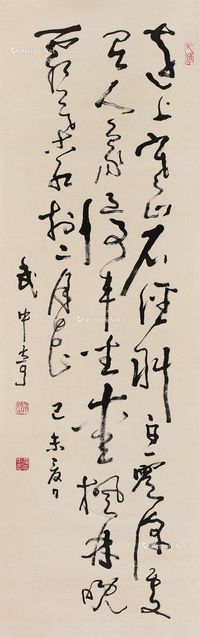 遠上寒山石徑斜白雲深處
有人家停車坐愛楓林晚
霜葉紅於二月花
己未夏日
武中奇